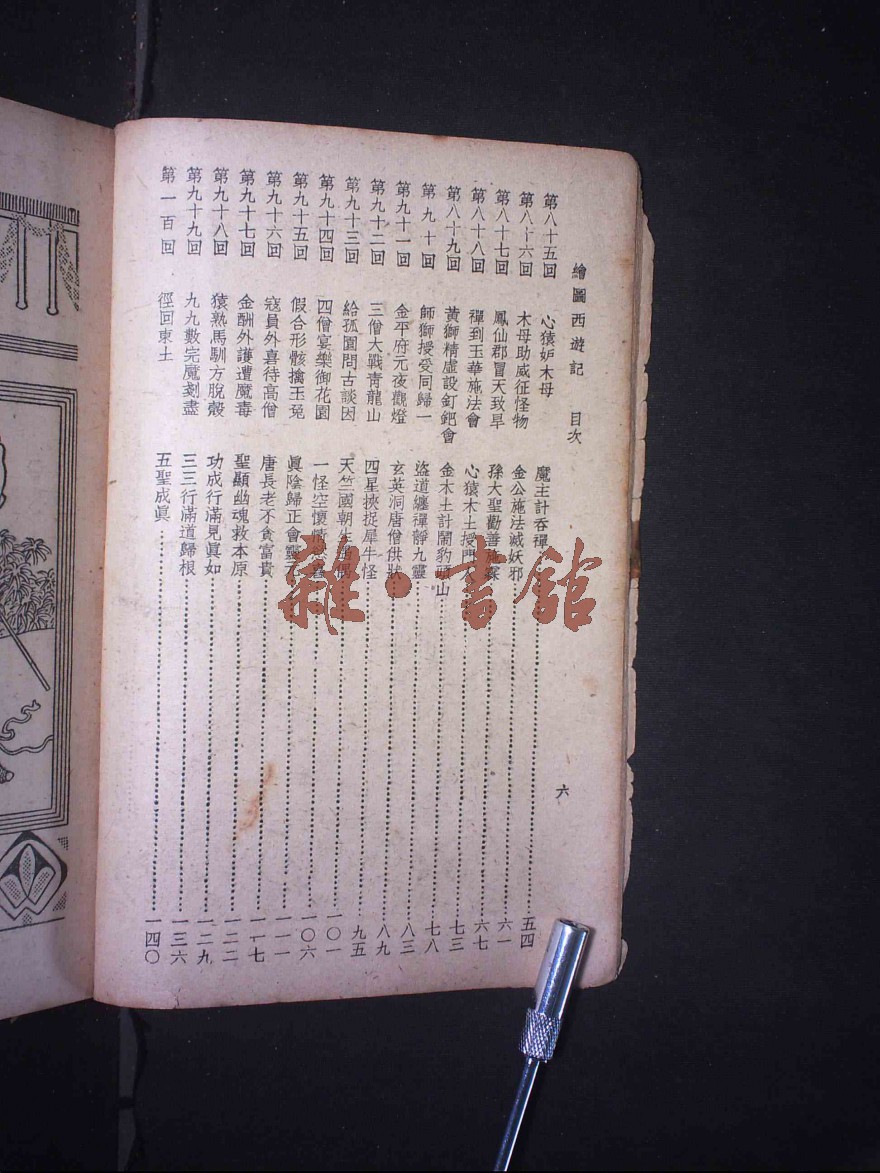 繪圖西遊記 目次
第八十五回 心猿妒木母 魔主計吞禪 五四
第八十六回 木母助威征怪物 金公施法滅妖邪 六一
第八十七回 鳳仙郡冒天致旱 孫大聖勸善施霖 六七
第八十八回 禪到玉華施法會 心猿木土授門 七三
第八十九回 黃獅精虛設釘鈀會 金木土計鬧豹頭山 七八
第九十回 師獅授受同歸一 盜道纏禪靜九靈 八三
第九十一回 金平府元夜觀燈 玄英洞唐僧供狀 八九
第九十二回 三僧大戰青龍山 四星挾捉犀牛怪 九五
第九十三回 給孤園問古談因 天竺國朝 偶 一〇一
第九十四回 四僧宴樂御花園 一怪空懷情 喜 一〇六
第九十五回 假合形骸擒玉兔 眞陰歸正會靈元 一一一
第九十六回 寇員外喜待高僧 唐長老不貪富貴 一一七
第九十七回 金酬外護遭魔毒 聖顯幽魂救本原 一二二
第九十八回 猿熟馬馴方脫殼 功成行滿見眞如 一二九
第九十九回 九九數完魔剗盡 三三行滿道歸根 一三六
第一百回 徑回東土 五聖成眞 一四〇
六
雜·書館